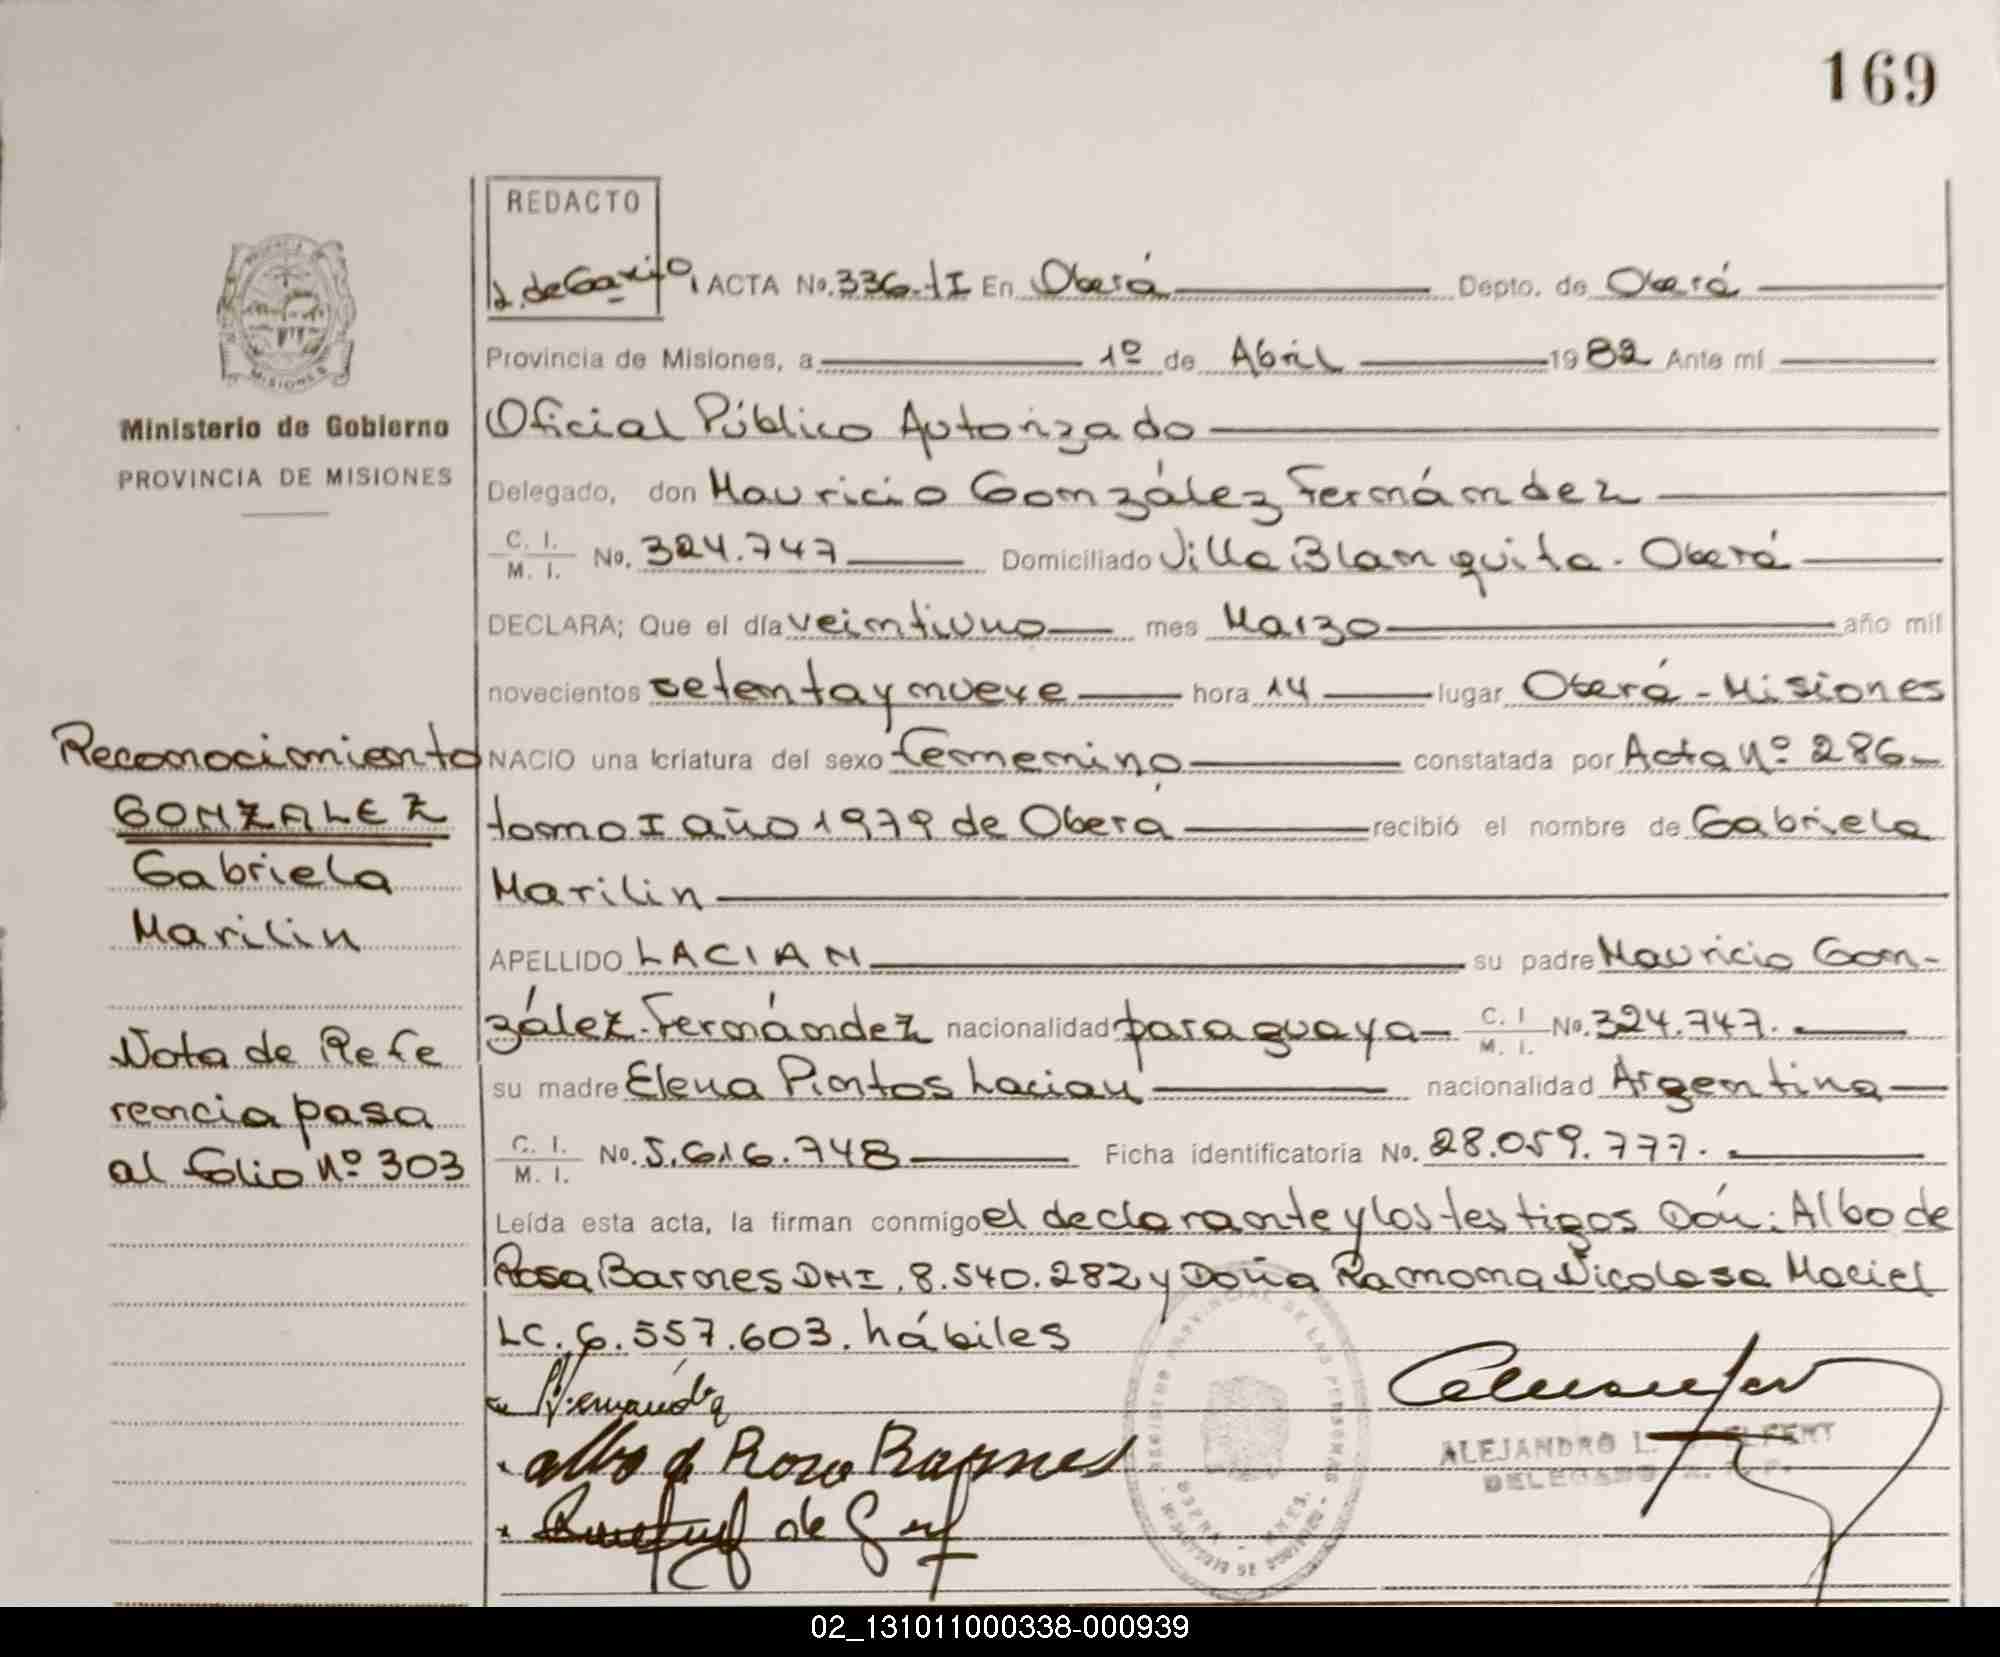 169
REDACTO
ACTA No. 336-tI En Oberá Depto. de Oberá
Provincia de Misiones, a 1º de Abril 1982 Ante mí
Ministerio de Gobierno
PROVINCIA DE MISIONES
Oficial Público Autorizado
Delegado, don Mauricio González Fernández
C. I. M. I. No. 324.747 Domiciliado Villa Blanquita - Oberá
DECLARA; Que el día veintiuno mes Marzo año mil
novecientos setenta y nueve hora 14 lugar Oberá - Misiones
NACIO una criatura del sexo femenino constatada por Acta Nº 286-
tomo I año 1979 de Oberá recibió el nombre de Gabriela
Marilin
APELLIDO LACIAN su padre Mauricio Gon-
zález Fernández nacionalidad paraguaya C. I. M. I. No. 324.747.
su madre Elena Pintos Lacian nacionalidad Argentina
C. I. M. I. No. 5.616.748 Ficha identificatoria No. 28.059.777.
Leída esta acta, la firman conmigo el declarante y los testigos Don: Albo de
Rosa Barnes DNI. 8.540.282 y Doña Ramona Nicolasa Maciel
LC. 6.557.603. hábiles
Reconocimiento
GONZALEZ
Gabriela
Marilin
Nota de Refe
rencia pasa
al folio Nº 303
Albo d Rosa Barnes
REGISTRO PROVINCIAL DE LAS PERSONAS
ALEJANDRO L.
DELEGADO
02_131011000338-000939